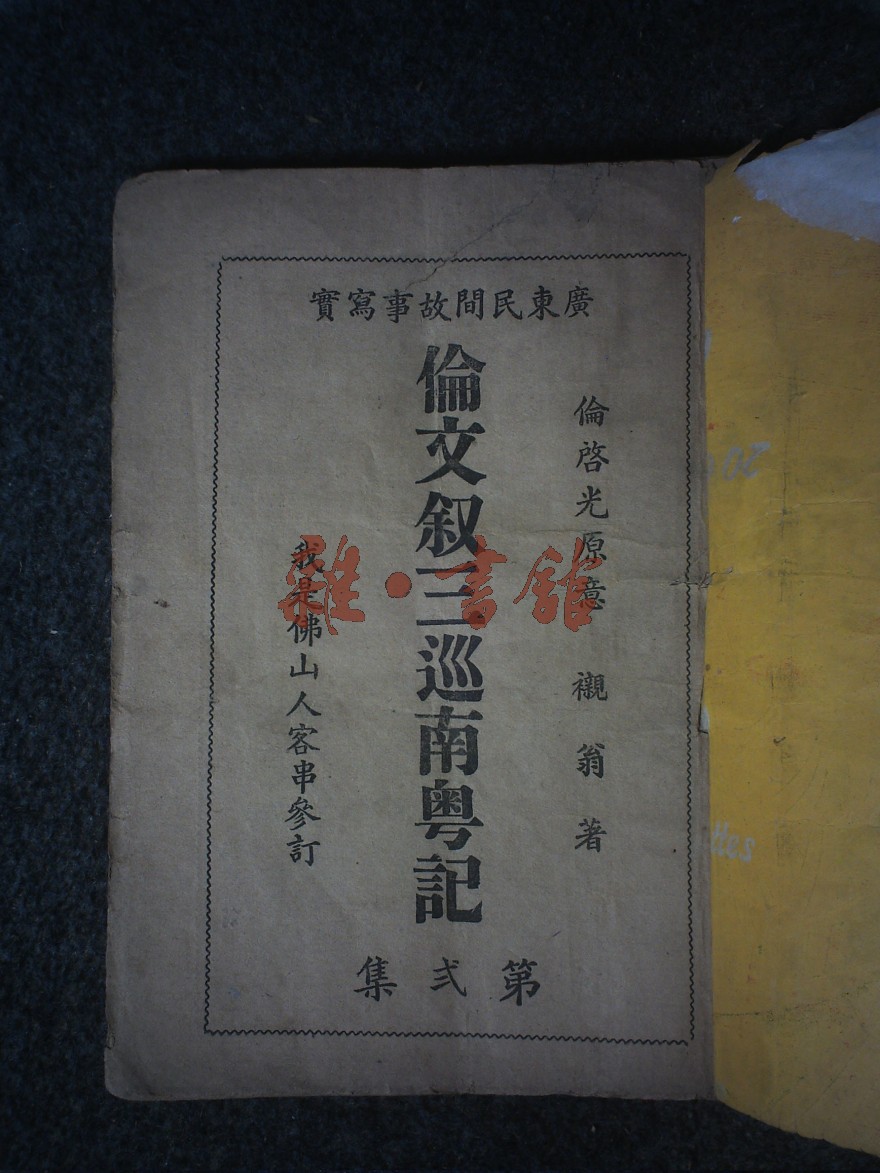 廣東民間故事寫實
倫啓光原意 襯翁著
倫文叙三巡南粤記
我是佛山人客串參訂
第弍集
雜·書館